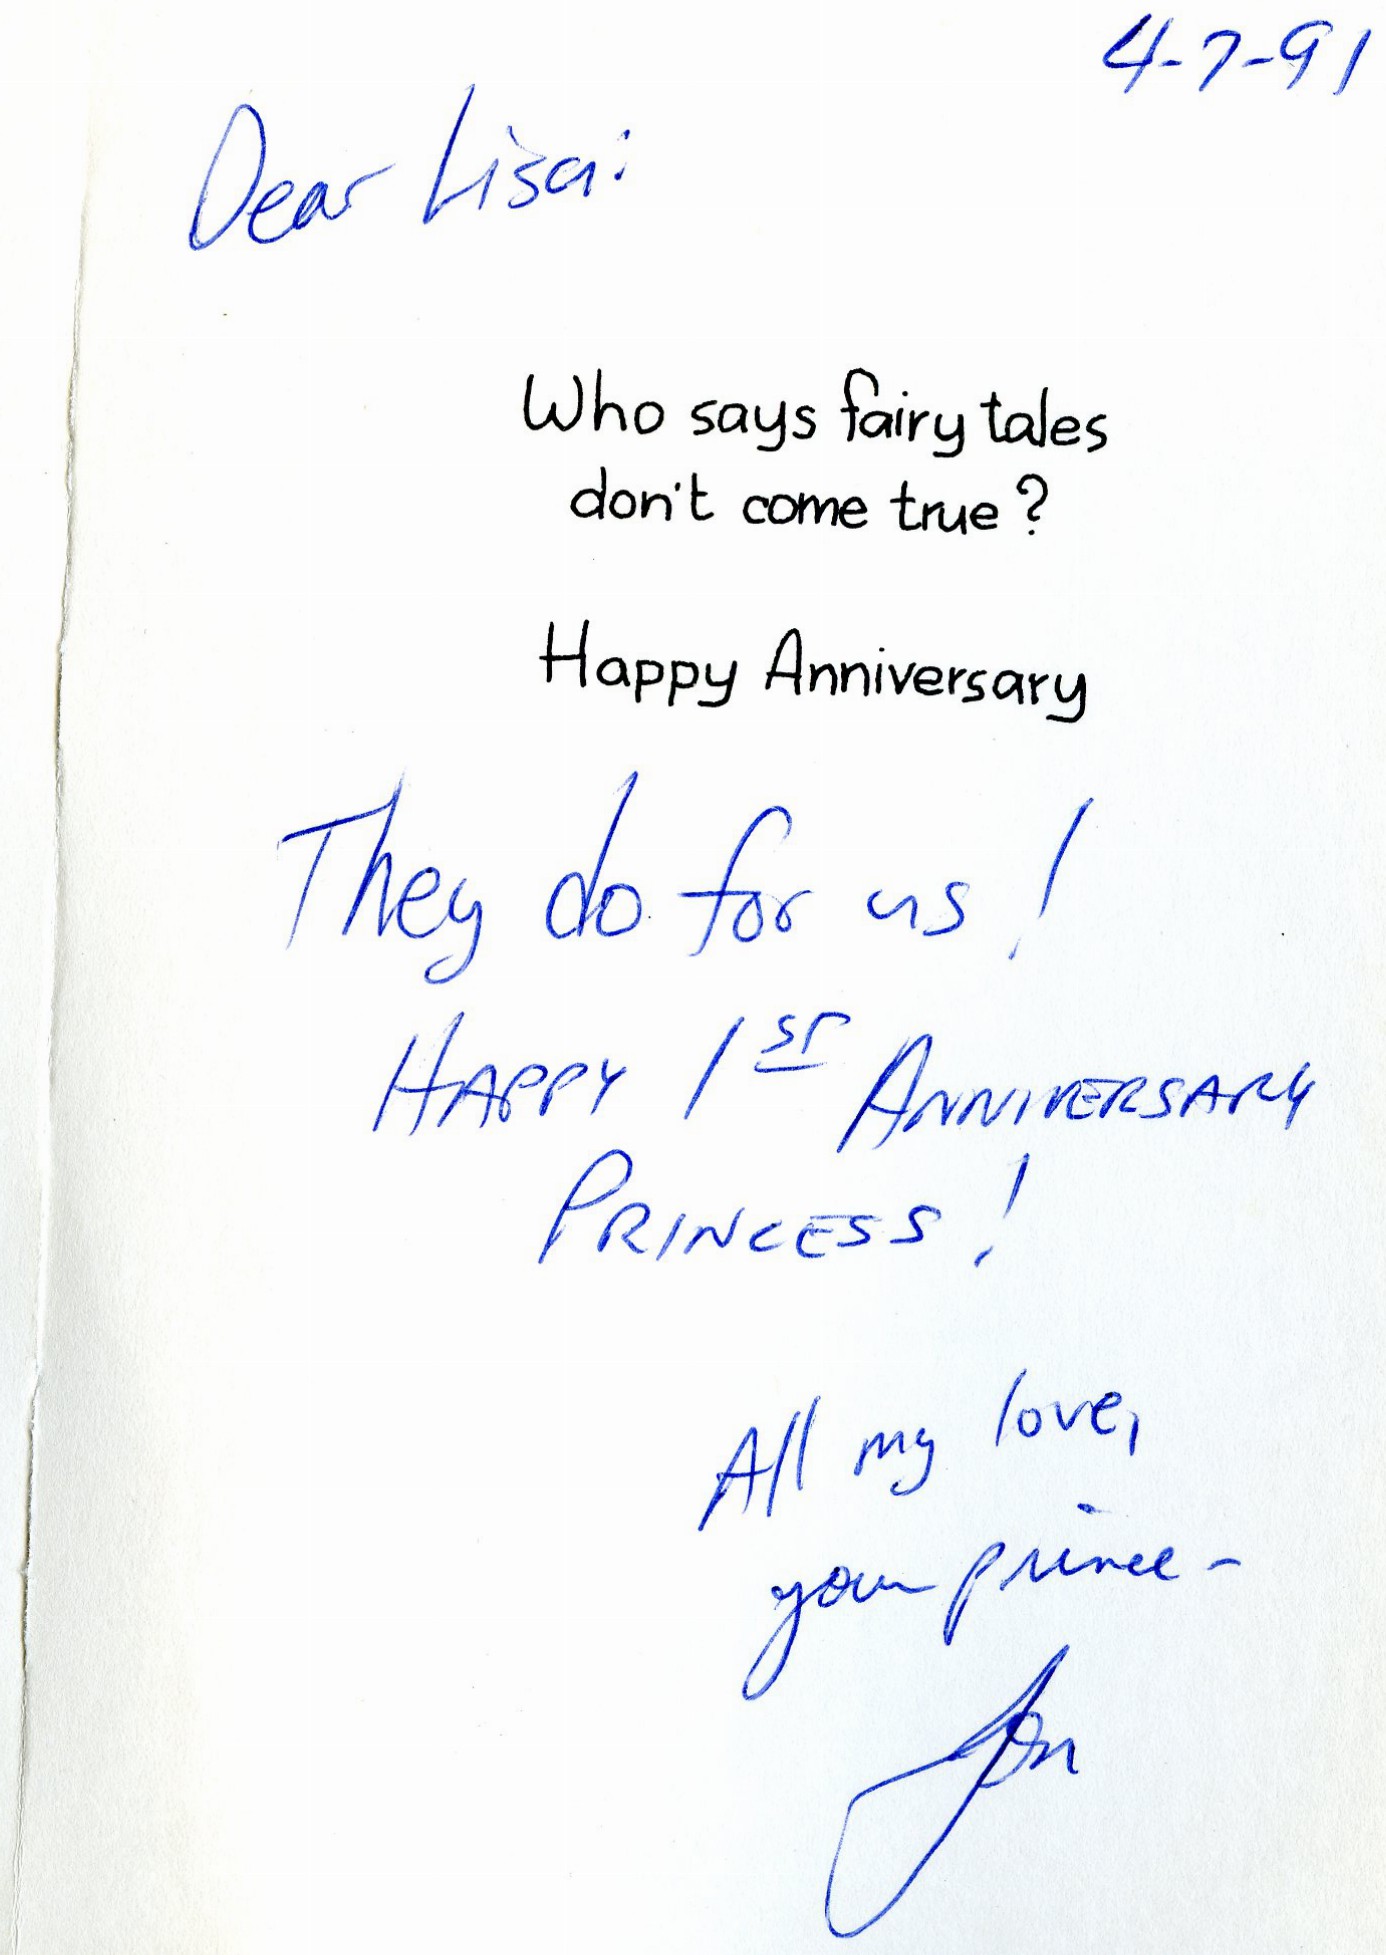 4-7-91
Dear Lisa:
Who says fairy tales
don't come true?
Happy Anniversary
They do for us!
HAPPY 1ST ANNIVERSARY
PRINCESS!
All my love,
your prince-
Jon